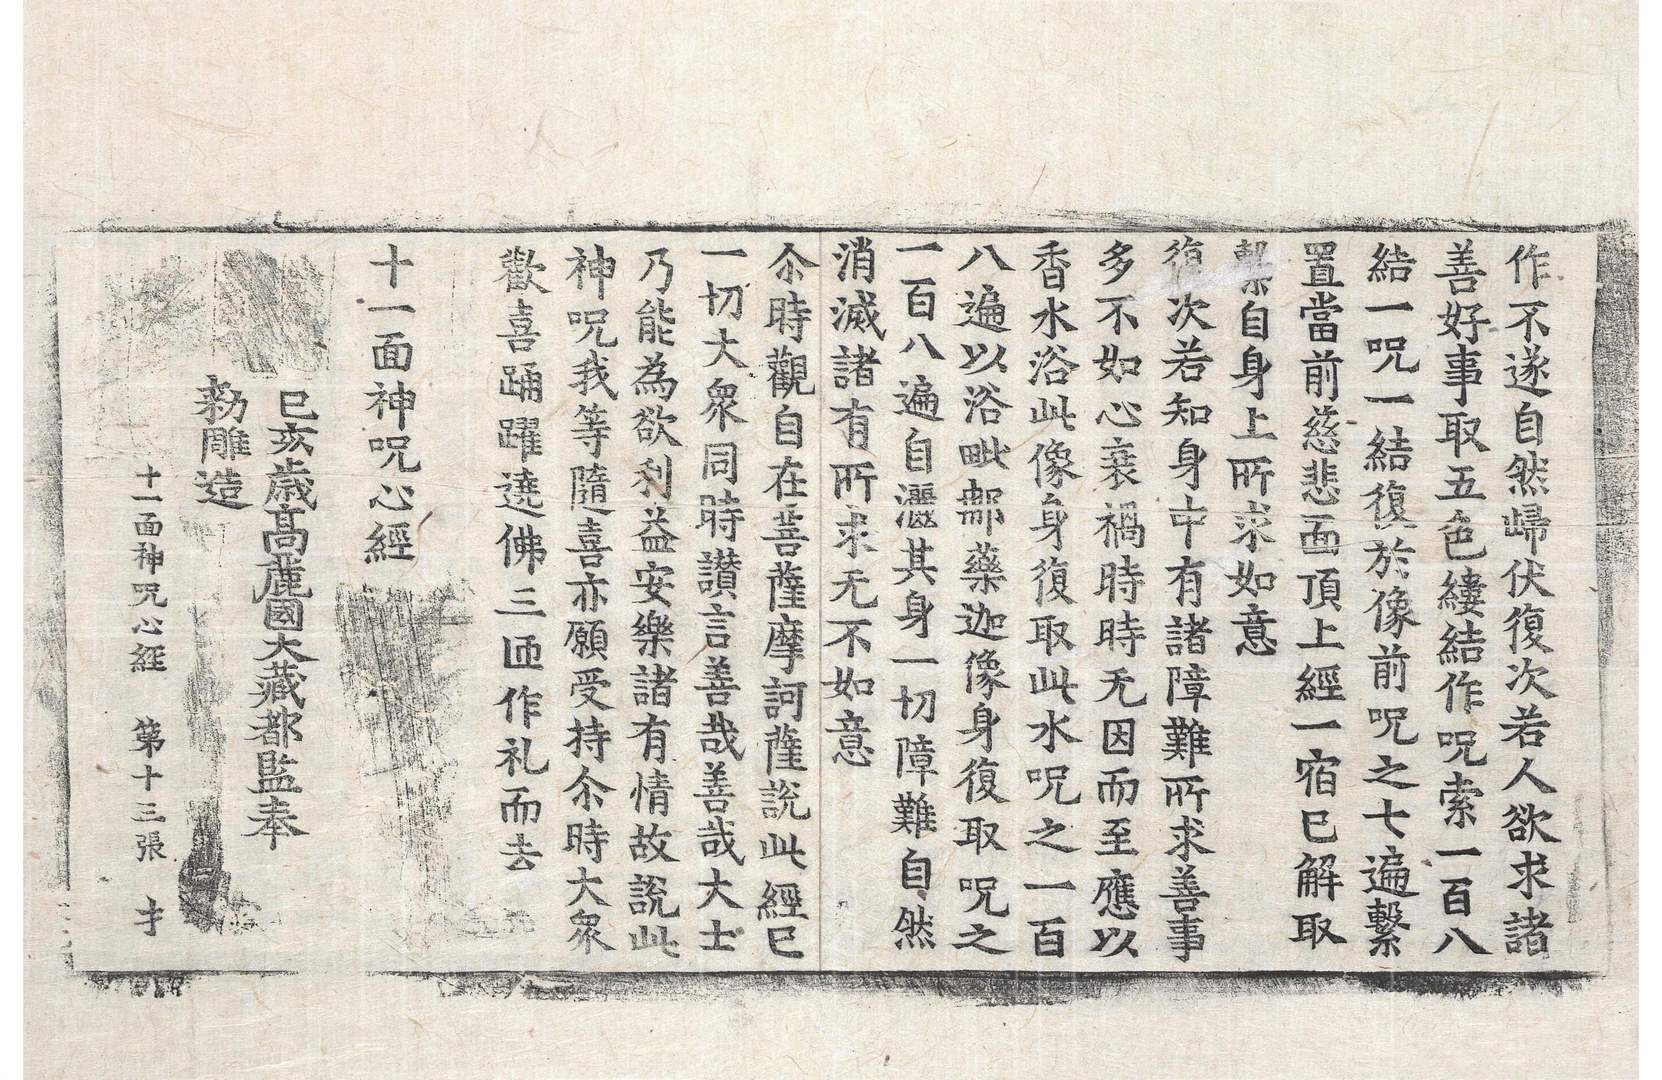 作不遂自然歸伏復次若人欲求諸
善好事取五色縷結作呪索一百八
結一呪一結復於像前呪之七遍繫
置當前慈悲面頂上經一宿已解取
繫自身上所求如意
復次若知身中有諸障難所求善事
多不如心衰禍時時无因而至應以
香水浴此像身復取此水呪之一百
八遍以浴毗鄊藥迦像身復取呪之
一百八遍自灑其身一切障難自然
消滅諸有所求无不如意
尒時觀自在菩薩摩訶薩說此經已
一切大衆同時讚言善哉善哉大士
乃能為欲利益安樂諸有情故說此
神呪我等隨喜亦願受持尒時大衆
歡喜踊躍遶佛三匝作礼而去
十一面神呪心經
己亥歲高麗國大藏都監奉
勑雕造
十一面神呪心經 第十三張 才